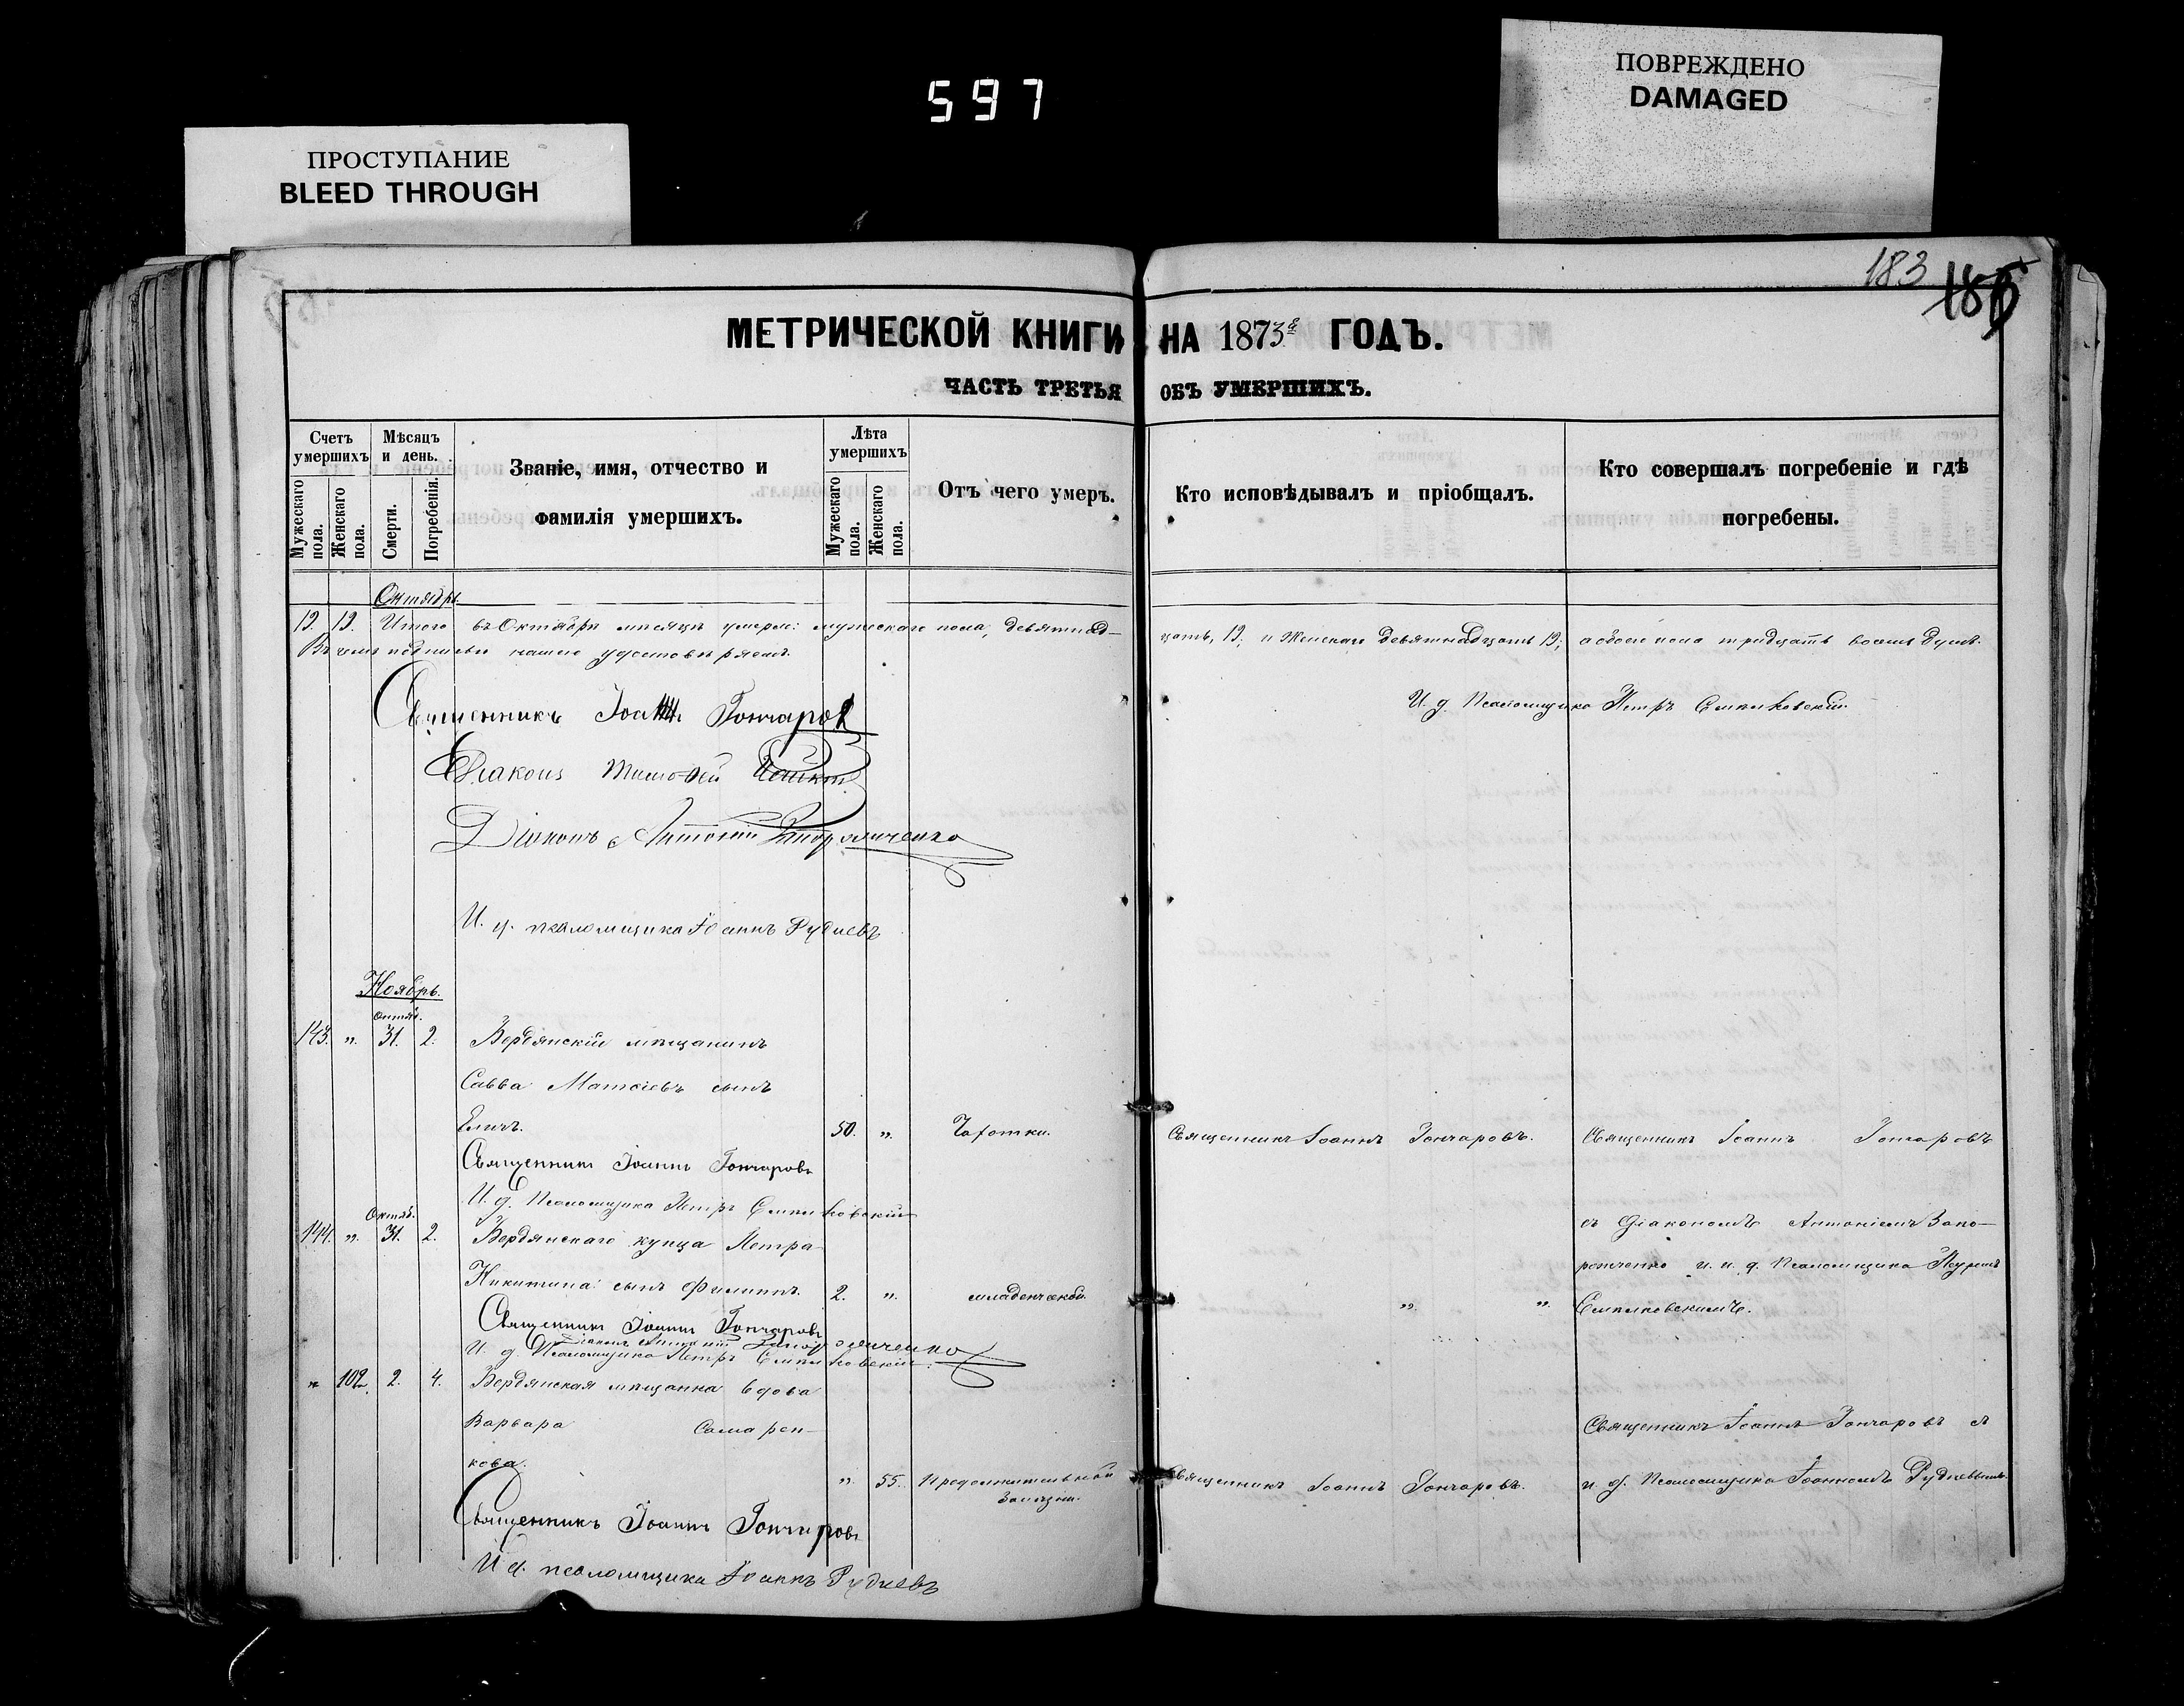 597
ПРОСТУПАНИЕ
BLEED THROUGH
ПОВРЕЖДЕНО
DAMAGED
183
МЕТРИЧЕСКОЙ КНИГИ НА 1873й ГОДЪ.
ЧАСТЬ ТРЕТЬЯ ОБЪ УМЕРШИХЪ.
Счетъ умершихъ
Мужескаго пола.
Женскаго пола.
Мѣсяцъ и день.
Смерти.
Погребенія.
Званіе, имя, отчество и
фамилія умершихъ.
Лѣта умершихъ
Мужескаго пола.
Женскаго пола.
Отъ чего умеръ.
Кто исповѣдывалъ и пріобщалъ.
Кто совершалъ погребеніе и гдѣ
погребены.
Октябрь
19. 19. Итого въ Октябрѣ мѣсяцѣ умерло: мужескаго пола, девятнад-
цать, 19, и женскаго девятнадцать 19, а обоего пола тридцать восемь душъ.
Въ чемъ подписью нашею удостовѣряемъ.
Священникъ Іоаннъ Гончаровъ
И. д. Псаломщика Петръ
Діаконъ Тимофей
Діаконъ Антоній Запорожченко
И. д. псаломщика Іоаннъ Рудневъ
Ноябрь.
Октяб.
143. „ 31. 2. Бердянскій мѣщанинъ
Савва Матѳіевъ сынъ
Еличъ. 50. „ Чахотки. Священникъ Іоаннъ Гончаровъ. Священникъ Іоаннъ Гончаровъ
Священникъ Іоаннъ Гончаровъ
И. д. Псаломщика Петръ
Октяб.
съ Діакономъ Антоніемъ Запо-
144. „ 31. 2. Бердянскаго купца Петра
рожченко и и. д. Псаломщика Петромъ
Никитина сынъ Филиппъ. 2. „ младенческой. „ „
Священникъ Іоаннъ Гончаровъ
Діаконъ Антоній Запорожченко
И. д. Псаломщика Петръ
„ 102. 2. 4. Бердянская мѣщанка вдова
Варвара Самарен-
Священникъ Іоаннъ Гончаровъ съ
кова. „ 55. Продолжительной Священникъ Іоаннъ Гончаровъ. и. д. Псаломщика Іоанномъ Рудневымъ.
болѣзни.
Священникъ Іоаннъ Гончаровъ
И д. псаломщика Іоаннъ Рудневъ